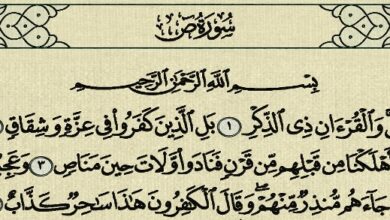 سُورَةُ صٓ
بِسْمِ ٱللَّهِ ٱلرَّحْمَٰنِ ٱلرَّحِيمِ
وَٱلْقُرْءَانِ ذِى ٱلذِّكْرِ ١ بَلِ ٱلَّذِينَ كَفَرُوا۟ فِى عِزَّةٍ وَشِقَاقٍ
أَهْلَكْنَا مِن قَبْلِهِم مِّن قَرْنٍ فَنَادَوا۟ وَّلَاتَ حِينَ مَنَاصٍ ٣
جَآءَهُم مُّنذِرٌ مِّنْهُمْ ۖ وَقَالَ ٱلْكَٰفِرُونَ هَٰذَا سَٰحِرٌ كَذَّابٌ